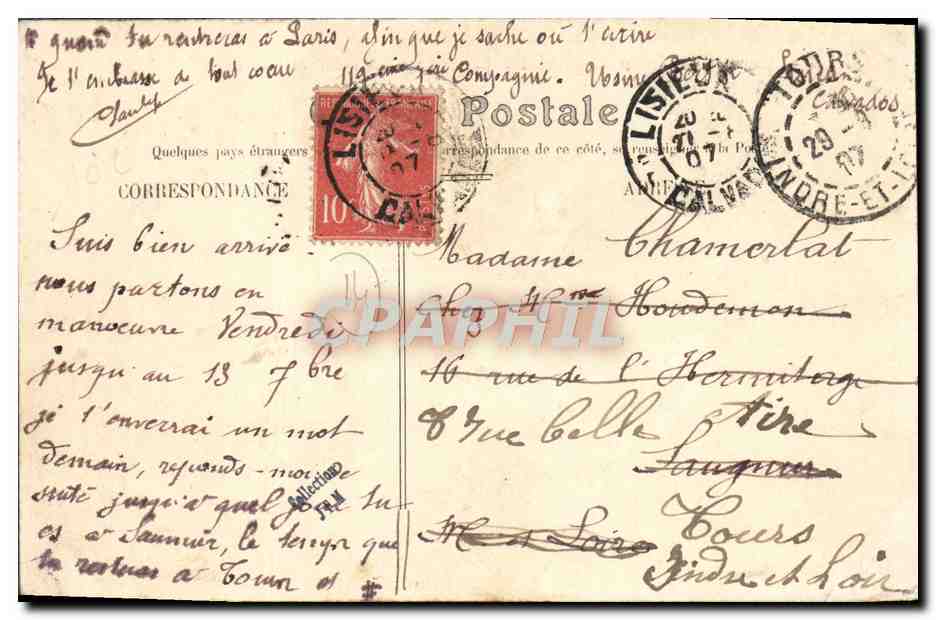 # quand tu rentreras à Paris, afin que je sache où t'écrire
Je t'embrasse de tout coeur
119 Compagnie. Usine
Calvados
Postale
Quelques pays étrangers
correspondance de ce côté, se renseigner à la Poste
CORRESPONDANCE
ADRESSE
LISIEUX
CALVADOS
07
10
LISIEUX
20
07
CALVADOS
TOURS
29
07
INDRE-ET-L
Suis bien arrivé
nous partons en
manoeuvre Vendredi
jusqu'au 13 7bre
je t'enverrai un mot
demain, réponds-moi de
suite jusqu'à quel jour tu
es à Saumur, le temps que
tu restes à Tours et #
Collection
J.R.M
CPAPHIL
Madame Chamerlat
Chez Mme Houdemon
16 rue de l'Hermitage
8 rue belle Aire
Saumur
M et Loire
Tours
Indre et Loir